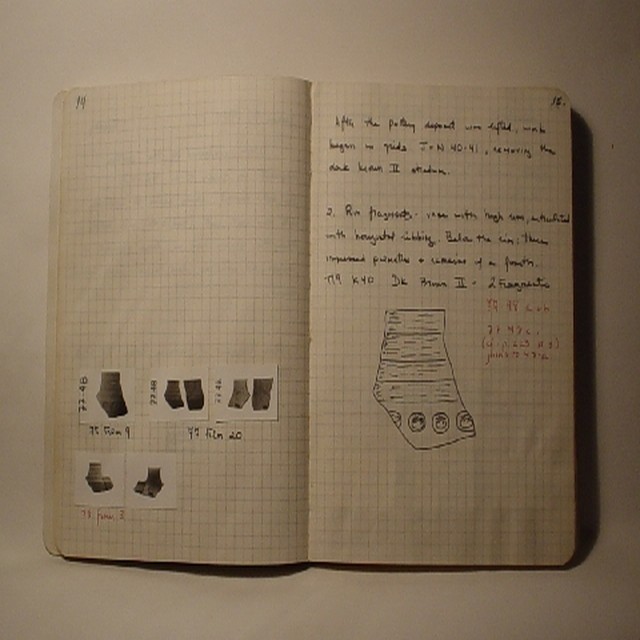 14
77-48
77-48
77-48
77 film 9
77 film 20
78 film 3
15.
After the pottery deposit was lifted, work
began in grids J-N 40-41, removing the
dark brown II stratum.
2. Rim fragments - vase with high rim, articulated
with horizontal ribbing. Below the rim, three
impressed rosettes + remains of a fourth.
K40 Dk Brown II - 2 Fragments